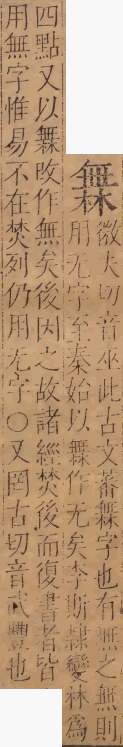 橆
微夫切音巫此古文蕃橆字也有無之無則
用无字至秦始以橆作无矣李斯隸變林為
四點又以橆攺作無矣後因之故諸經焚後而復書者皆
用無字惟易不在焚列仍用无字○又罔古切音武豐也